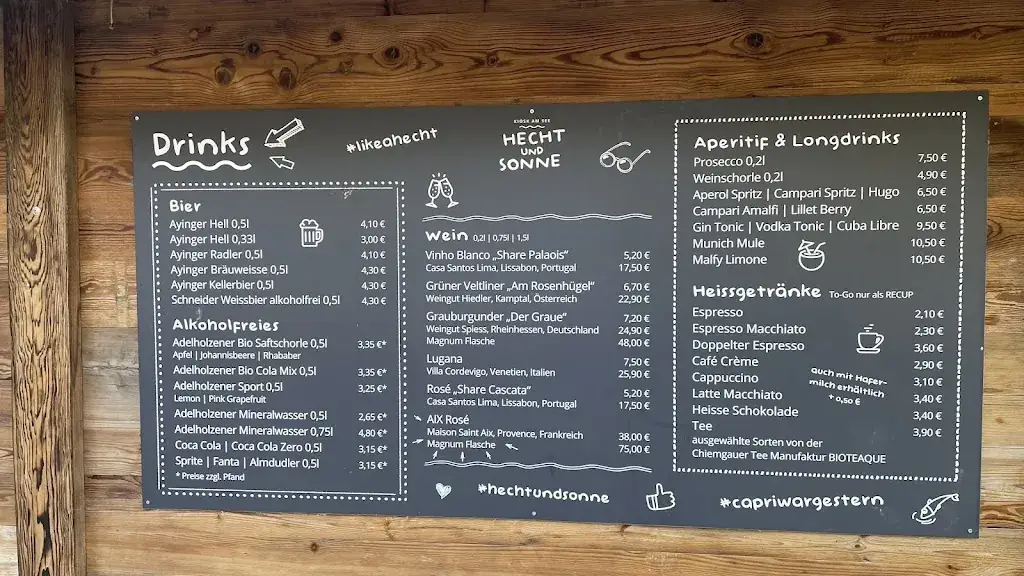 Drinks
#likeahecht
KIOSK AM SEE
HECHT
UND
SONNE
Bier
Ayinger Hell 0,5l 4,10 €
Ayinger Hell 0,33l 3,00 €
Ayinger Radler 0,5l 4,10 €
Ayinger Bräuweisse 0,5l 4,30 €
Ayinger Kellerbier 0,5l 4,30 €
Schneider Weissbier alkoholfrei 0,5l 4,30 €
Alkoholfreies
Adelholzener Bio Saftschorle 0,5l 3,35 €*
Apfel | Johannisbeere | Rhababer
Adelholzener Bio Cola Mix 0,5l 3,35 €*
Adelholzener Sport 0,5l 3,25 €*
Lemon | Pink Grapefruit
Adelholzener Mineralwasser 0,5l 2,65 €*
Adelholzener Mineralwasser 0,75l 4,80 €*
Coca Cola | Coca Cola Zero 0,5l 3,15 €*
Sprite | Fanta | Almdudler 0,5l 3,15 €*
* Preise zzgl. Pfand
Wein 0,2l | 0,75l | 1,5l
Vinho Blanco „Share Palaois“ 5,20 €
Casa Santos Lima, Lissabon, Portugal 17,50 €
Grüner Veltliner „Am Rosenhügel“ 6,70 €
Weingut Hiedler, Kamptal, Österreich 22,90 €
Grauburgunder „Der Graue“ 7,20 €
Weingut Spiess, Rheinhessen, Deutschland 24,90 €
Magnum Flasche 48,00 €
Lugana 7,50 €
Villa Cordevigo, Venetien, Italien 25,90 €
Rosé „Share Cascata“ 5,20 €
Casa Santos Lima, Lissabon, Portugal 17,50 €
AIX Rosé
Maison Saint Aix, Provence, Frankreich 38,00 €
Magnum Flasche 75,00 €
#hechtundsonne
Aperitif & Longdrinks
Prosecco 0,2l 7,50 €
Weinschorle 0,2l 4,90 €
Aperol Spritz | Campari Spritz | Hugo 6,50 €
Campari Amalfi | Lillet Berry 6,50 €
Gin Tonic | Vodka Tonic | Cuba Libre 9,50 €
Munich Mule 10,50 €
Malfy Limone 10,50 €
Heissgetränke To-Go nur als RECUP
Espresso 2,10 €
Espresso Macchiato 2,30 €
Doppelter Espresso 3,60 €
Café Crème 2,90 €
Cappuccino 3,10 €
Latte Macchiato 3,40 €
Heisse Schokolade 3,40 €
Tee 3,90 €
ausgewählte Sorten von der
Chiemgauer Tee Manufaktur BIOTEAQUE
auch mit Hafer-
milch erhältlich
+ 0,50 €
#capriwargestern